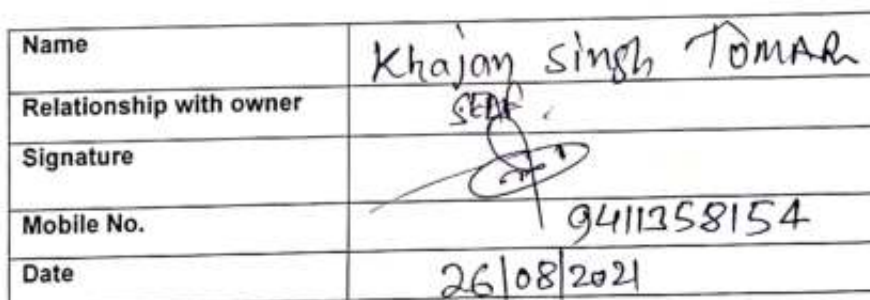 Name Khajan Singh TOMAR
Relationship with owner SELF.
Signature
Mobile No. 9411358154
Date 26/08/2021